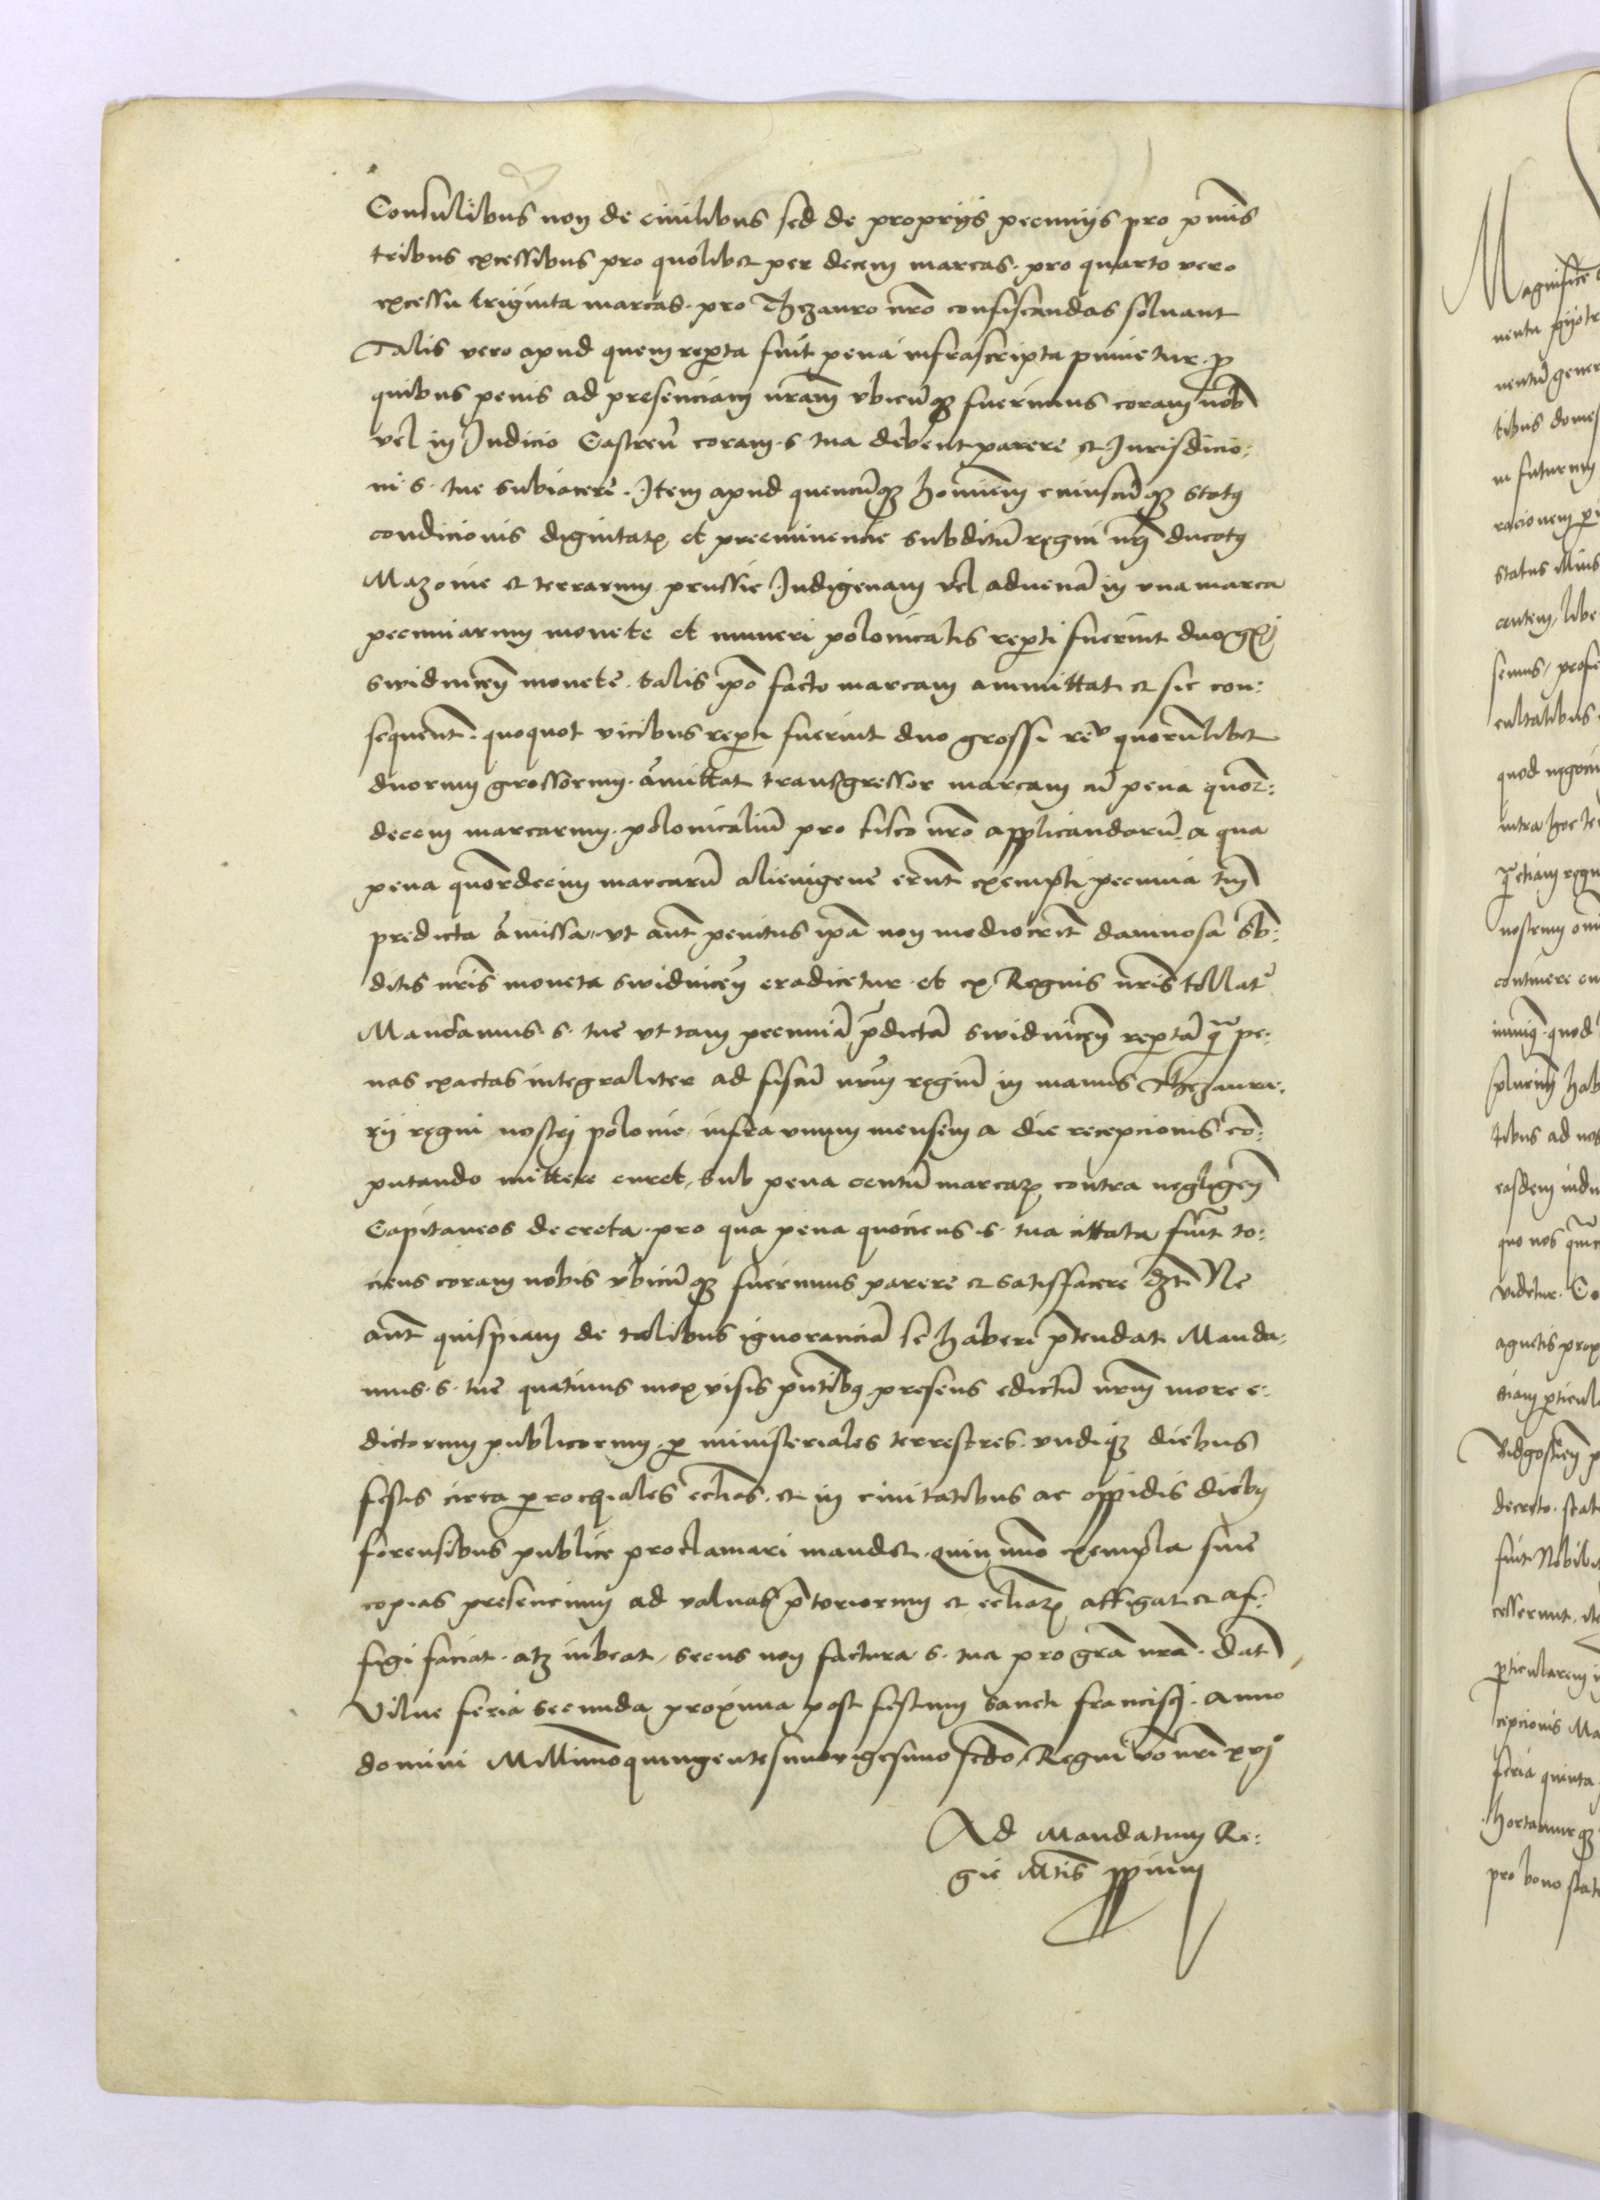 Consulibus non de ciuilibus sed de proprÿs pecunÿs pro p̄mis
tribus excessibus pro quolibet per decem marcas. pro quarto vero
excessu triginta marcas. pro Thezauro nr̄o confiscandas soluant
Talis vero apud quem rep̱ta fuit pena infrascripta punietur. p̱
quibus penis ad presenciam nr̄am vbicūqȝ fuerimus coram nob̄
vel in Judicio Castreñ coram. s. tua debent parere et Jurisdicio:
ni. s. tue subiacere. Item apud quencūqȝ hominem cuiuscūqȝ statꝯ
condicionis dignitatꝭ et preeminencie subditū regni nr̄j ducatꝯ
Mazouie et terrarum prussie Indigenam vel aduenā in vna marca
pecuniarum monete et numeri polonicalis rep̱ti fuerint duo gr̄j
swidniceñ monete. talis ip̄o facto marcam ammittat et sic con:
sequent̄. quoquot vicibus rep̱ti fuerint duo grossi quorūlibet
duorum grossorum. āmittat transgressor marcam cū pena quor̄:
decem marcarum. polonicaliū pro fisco nr̄o applicandarū. a qua
pena quordecim marcarū alienigene erunt exempti pecunia tm̄
predicta āmissa. vt aut̄ penitus ip̄a non mediocrit̄ damnosa sb̄:
ditis nr̄is moneta swidniceñ eradicetur. et ex Regnis nr̄is tollat᷑
Mandamus. s. tue vt tam pecuniā p̄dictā swidniceñ rep̱tā q̄ pe:
nas exactas integraliter ad fiscū nr̄um regiū in manus Thezaura:
rÿ regni nostrj polonie infra vnum mensem a die recepcionis cō:
putando mittere curet, sub pena centū marcaꝝ contra negligen̄
Capitaneos decreta. pro qua pena quociens. s. tua cittata fu̅it to:
ciens coram nobis vbicūqȝ fuerimus parere et satisfacere Ne
aut̄ quispiam de talibus ignoranciā se habere p̄tendat. Manda:
mus. s. tue quatinus mox visis p̄ntibꝯ presens edictū nr̄um more e:
dictorum publicorum. p̱ ministeriales terrestres. vndiqȝ diebus
festis circa p̱rochiales ecl̄ias. et in ciuitatibus ac oppidis diebꝯ
forensibus publice proclamari mandet. quin ȳmo exempla siue
copias presencium ad valuas p̄toriorum et ecl̄iaꝝ affigat et af:
figi faciat. atqȝ iubeat, secus non factura s. tua pro gr̄a nr̄a. Dat̄
Vilne feria secunda proxima post festum sancti franciscj. anno
domini Millīmo quingentesimo vigesimo scd̄o, Regni vo nr̄i xvj°
Ad Mandatum Re:
gie Mt̄is ꝓprium